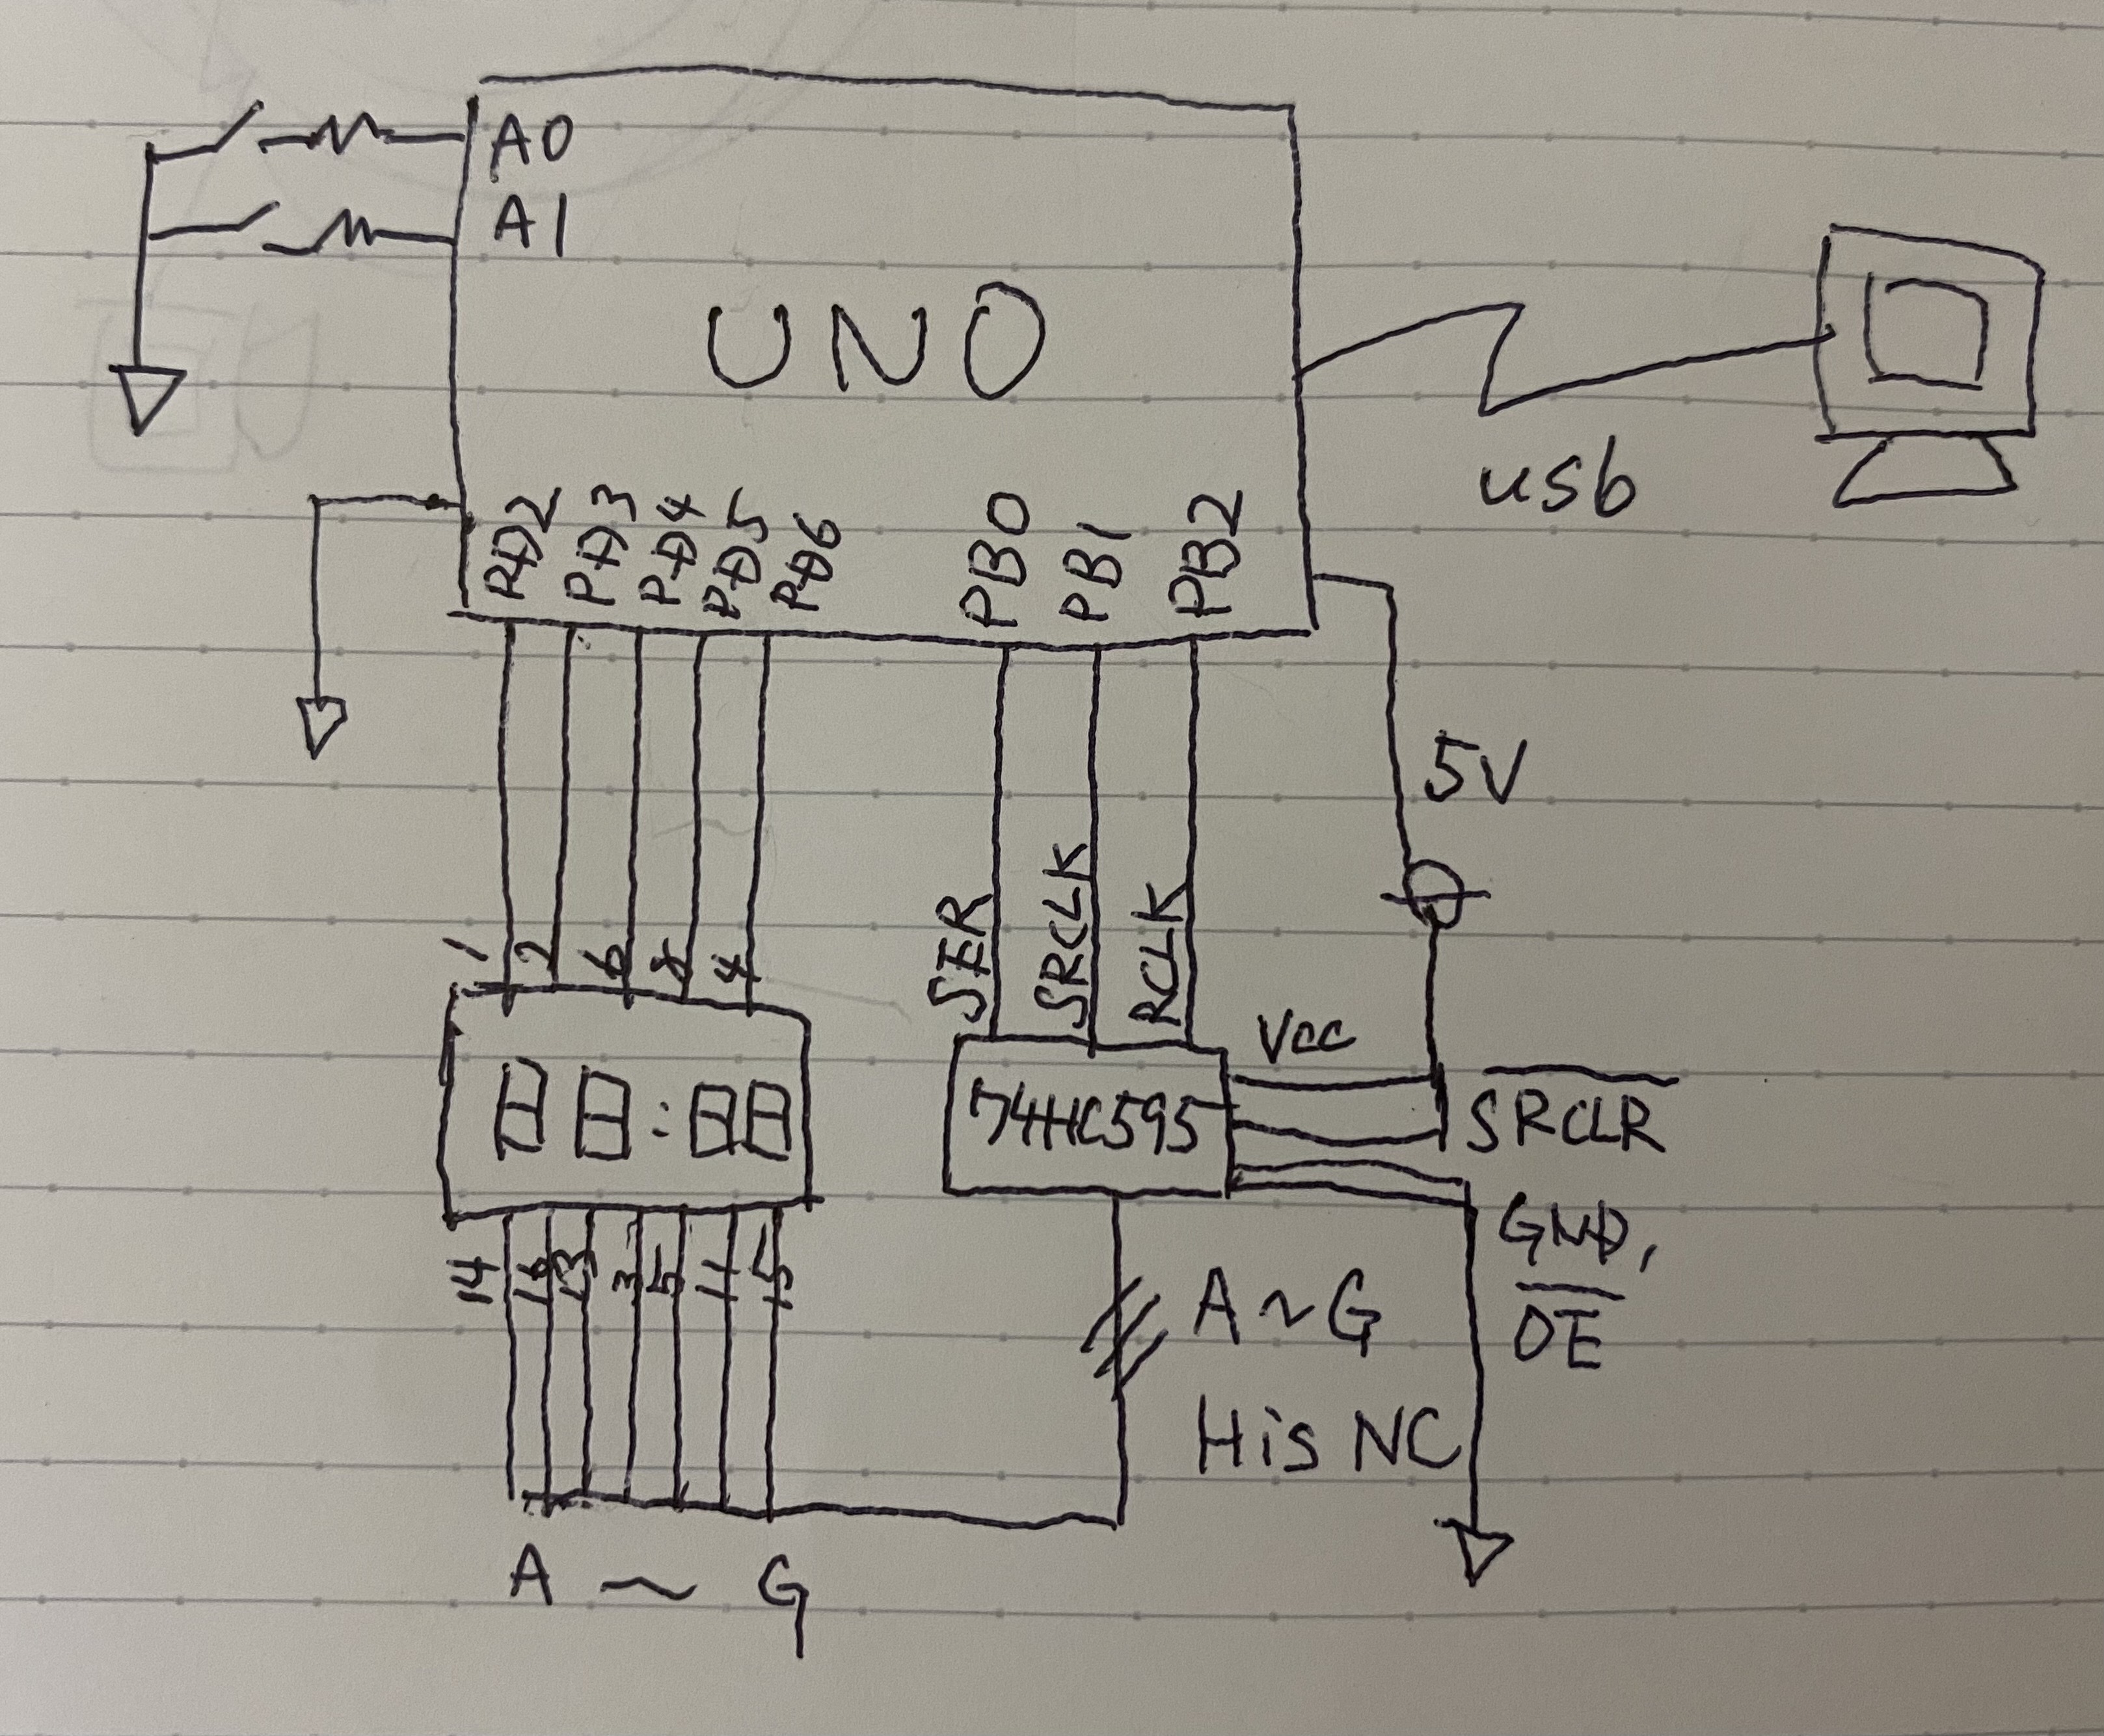 A0
A1
UNO
usb
PD2 PD3 PD4 PD5 PD6 PB0 PB1 PB2
5V
1 2 6 8 4
SER SRCLK RCLK
Vcc
88:88
74HC595
SRCLR
14 16 13 3 5 11 15
GND,
OE
A~G
H is NC
A ~ G